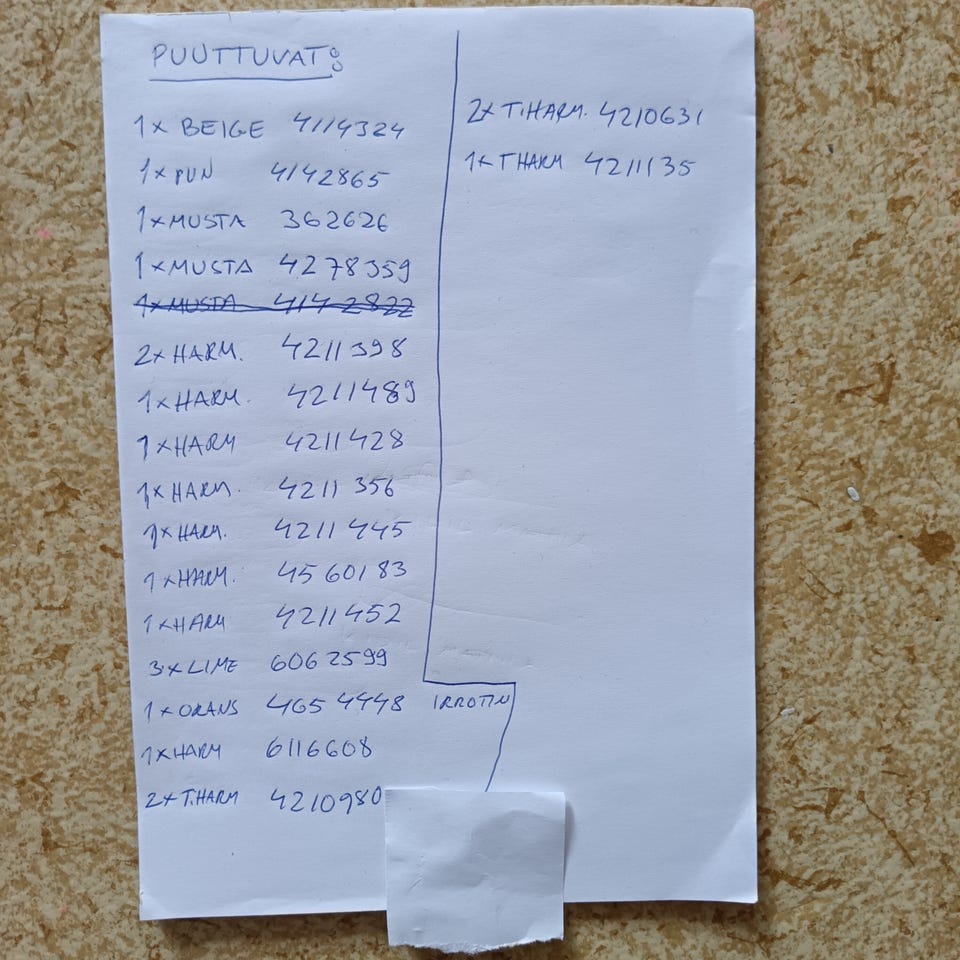 PUUTTUVAT:
1x BEIGE 4114324
1x PUN 4142865
1x MUSTA 362626
1x MUSTA 4278359
1x MUSTA 4142822
2x HARM. 4211398
1x HARM. 4211489
1x HARM 4211428
1x HARM. 4211356
1x HARM. 4211445
1x HARM. 4560183
1x HARM 4211452
3x LIME 6062599
1x ORANS 4654448 IRROTIN
1x HARM 6116608
2x T.HARM 4210980
2x T.HARM. 4210631
1x T HARM 4211135